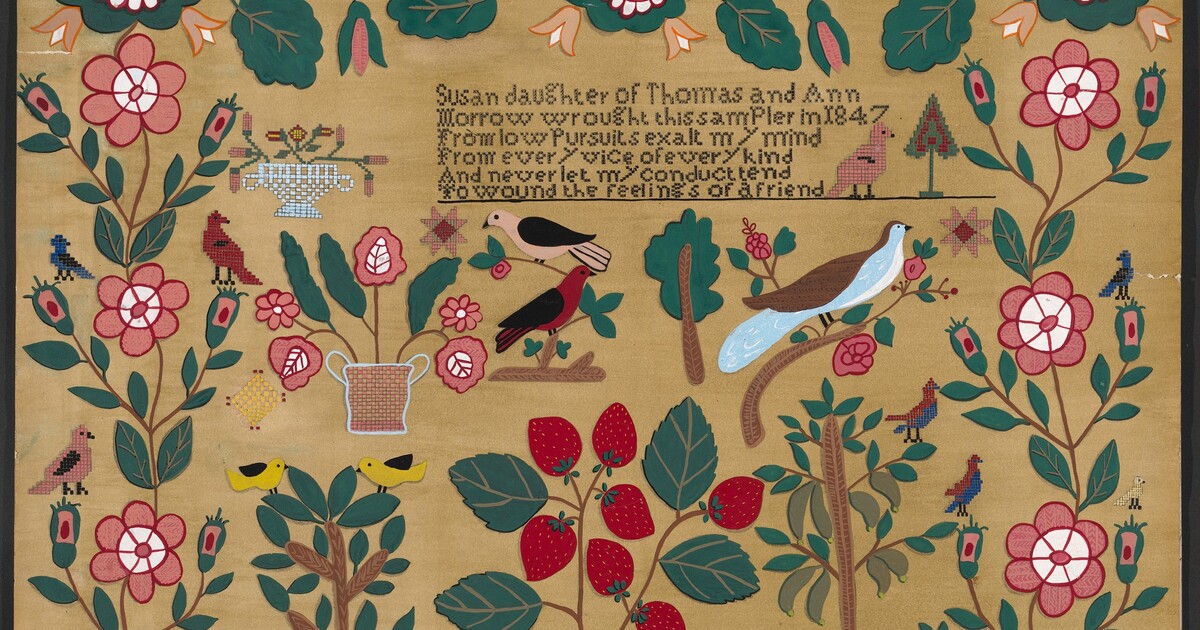 Susan daughter of Thomas and Ann
Morrow wrought this sampler in 1847
From low Pursuits exalt my mind
From every vice of every kind
And never let my conduct tend
To wound the feelings of a friend